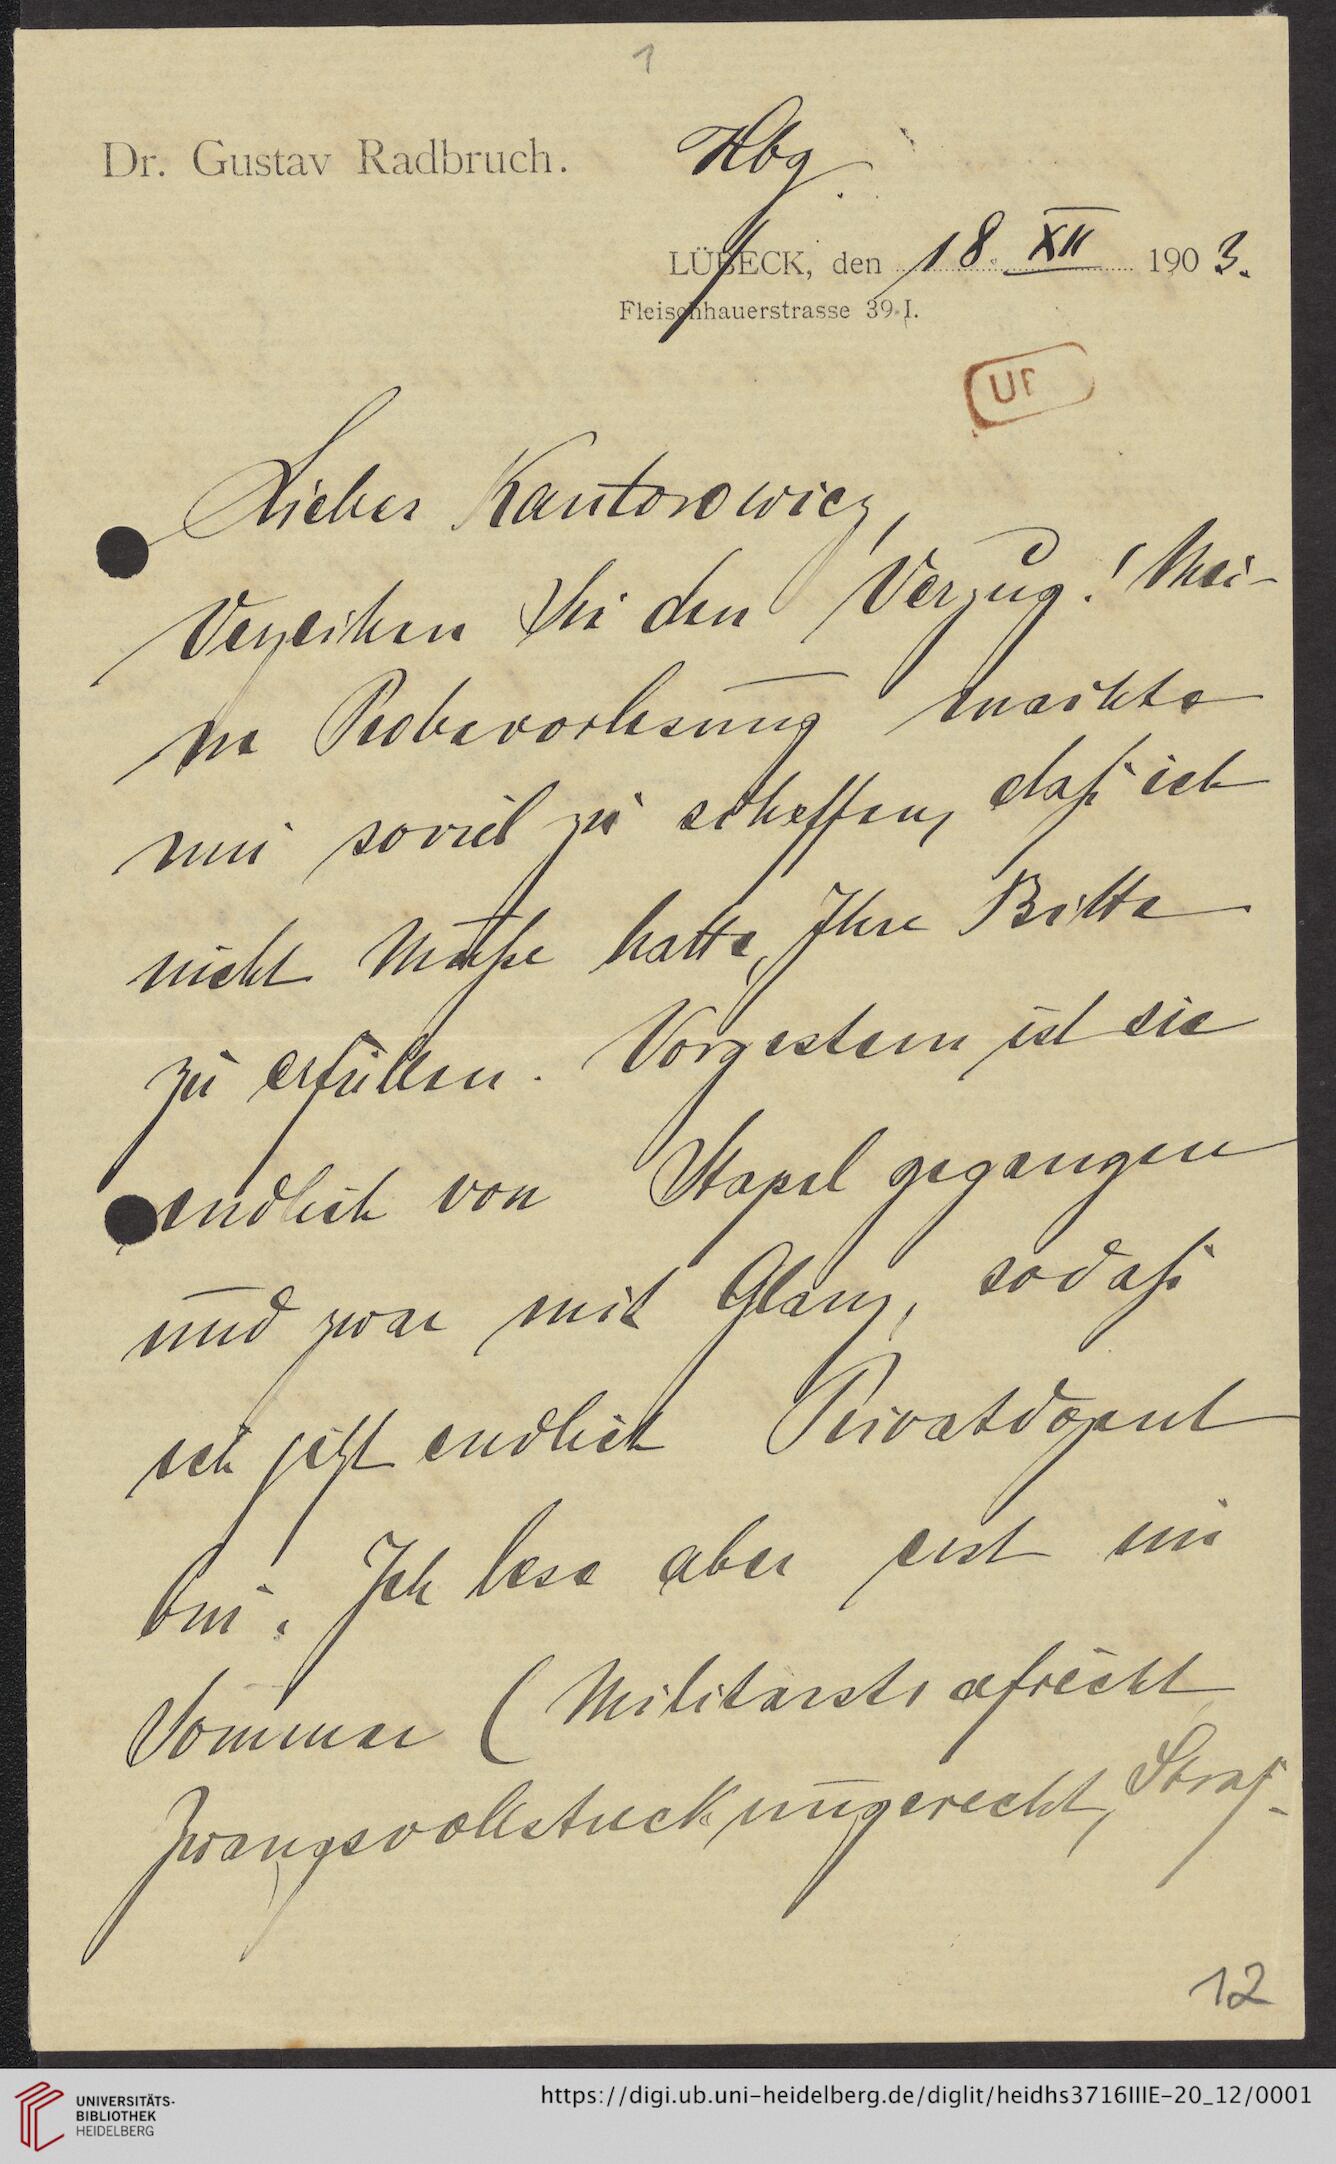 1
Dr. Gustav Radbruch.
Hbg.
LÜBECK, den 18. XII 1903.
Fleischhauerstrasse 39. I.
Lieber Kantorowicz,
Verzeihen Sie den Verzug! Mei-
ne Probevorlesung machte
mir soviel zu schaffen, daß ich
nicht Muße hatte, Ihre Bitte
zu erfüllen. Vorgestern ist sie
endlich von Stapel gegangen
und zwar mit Glanz, sodaß
ich jetzt endlich Privatdozent
bin. Ich lese aber erst im
Sommer (Militärstrafrecht
Zwangsvollstreckungsrecht, Straf-
12
UNIVERSITÄTS-
BIBLIOTHEK
HEIDELBERG
https://digi.ub.uni-heidelberg.de/diglit/heidhs3716IIIE-20_12/0001